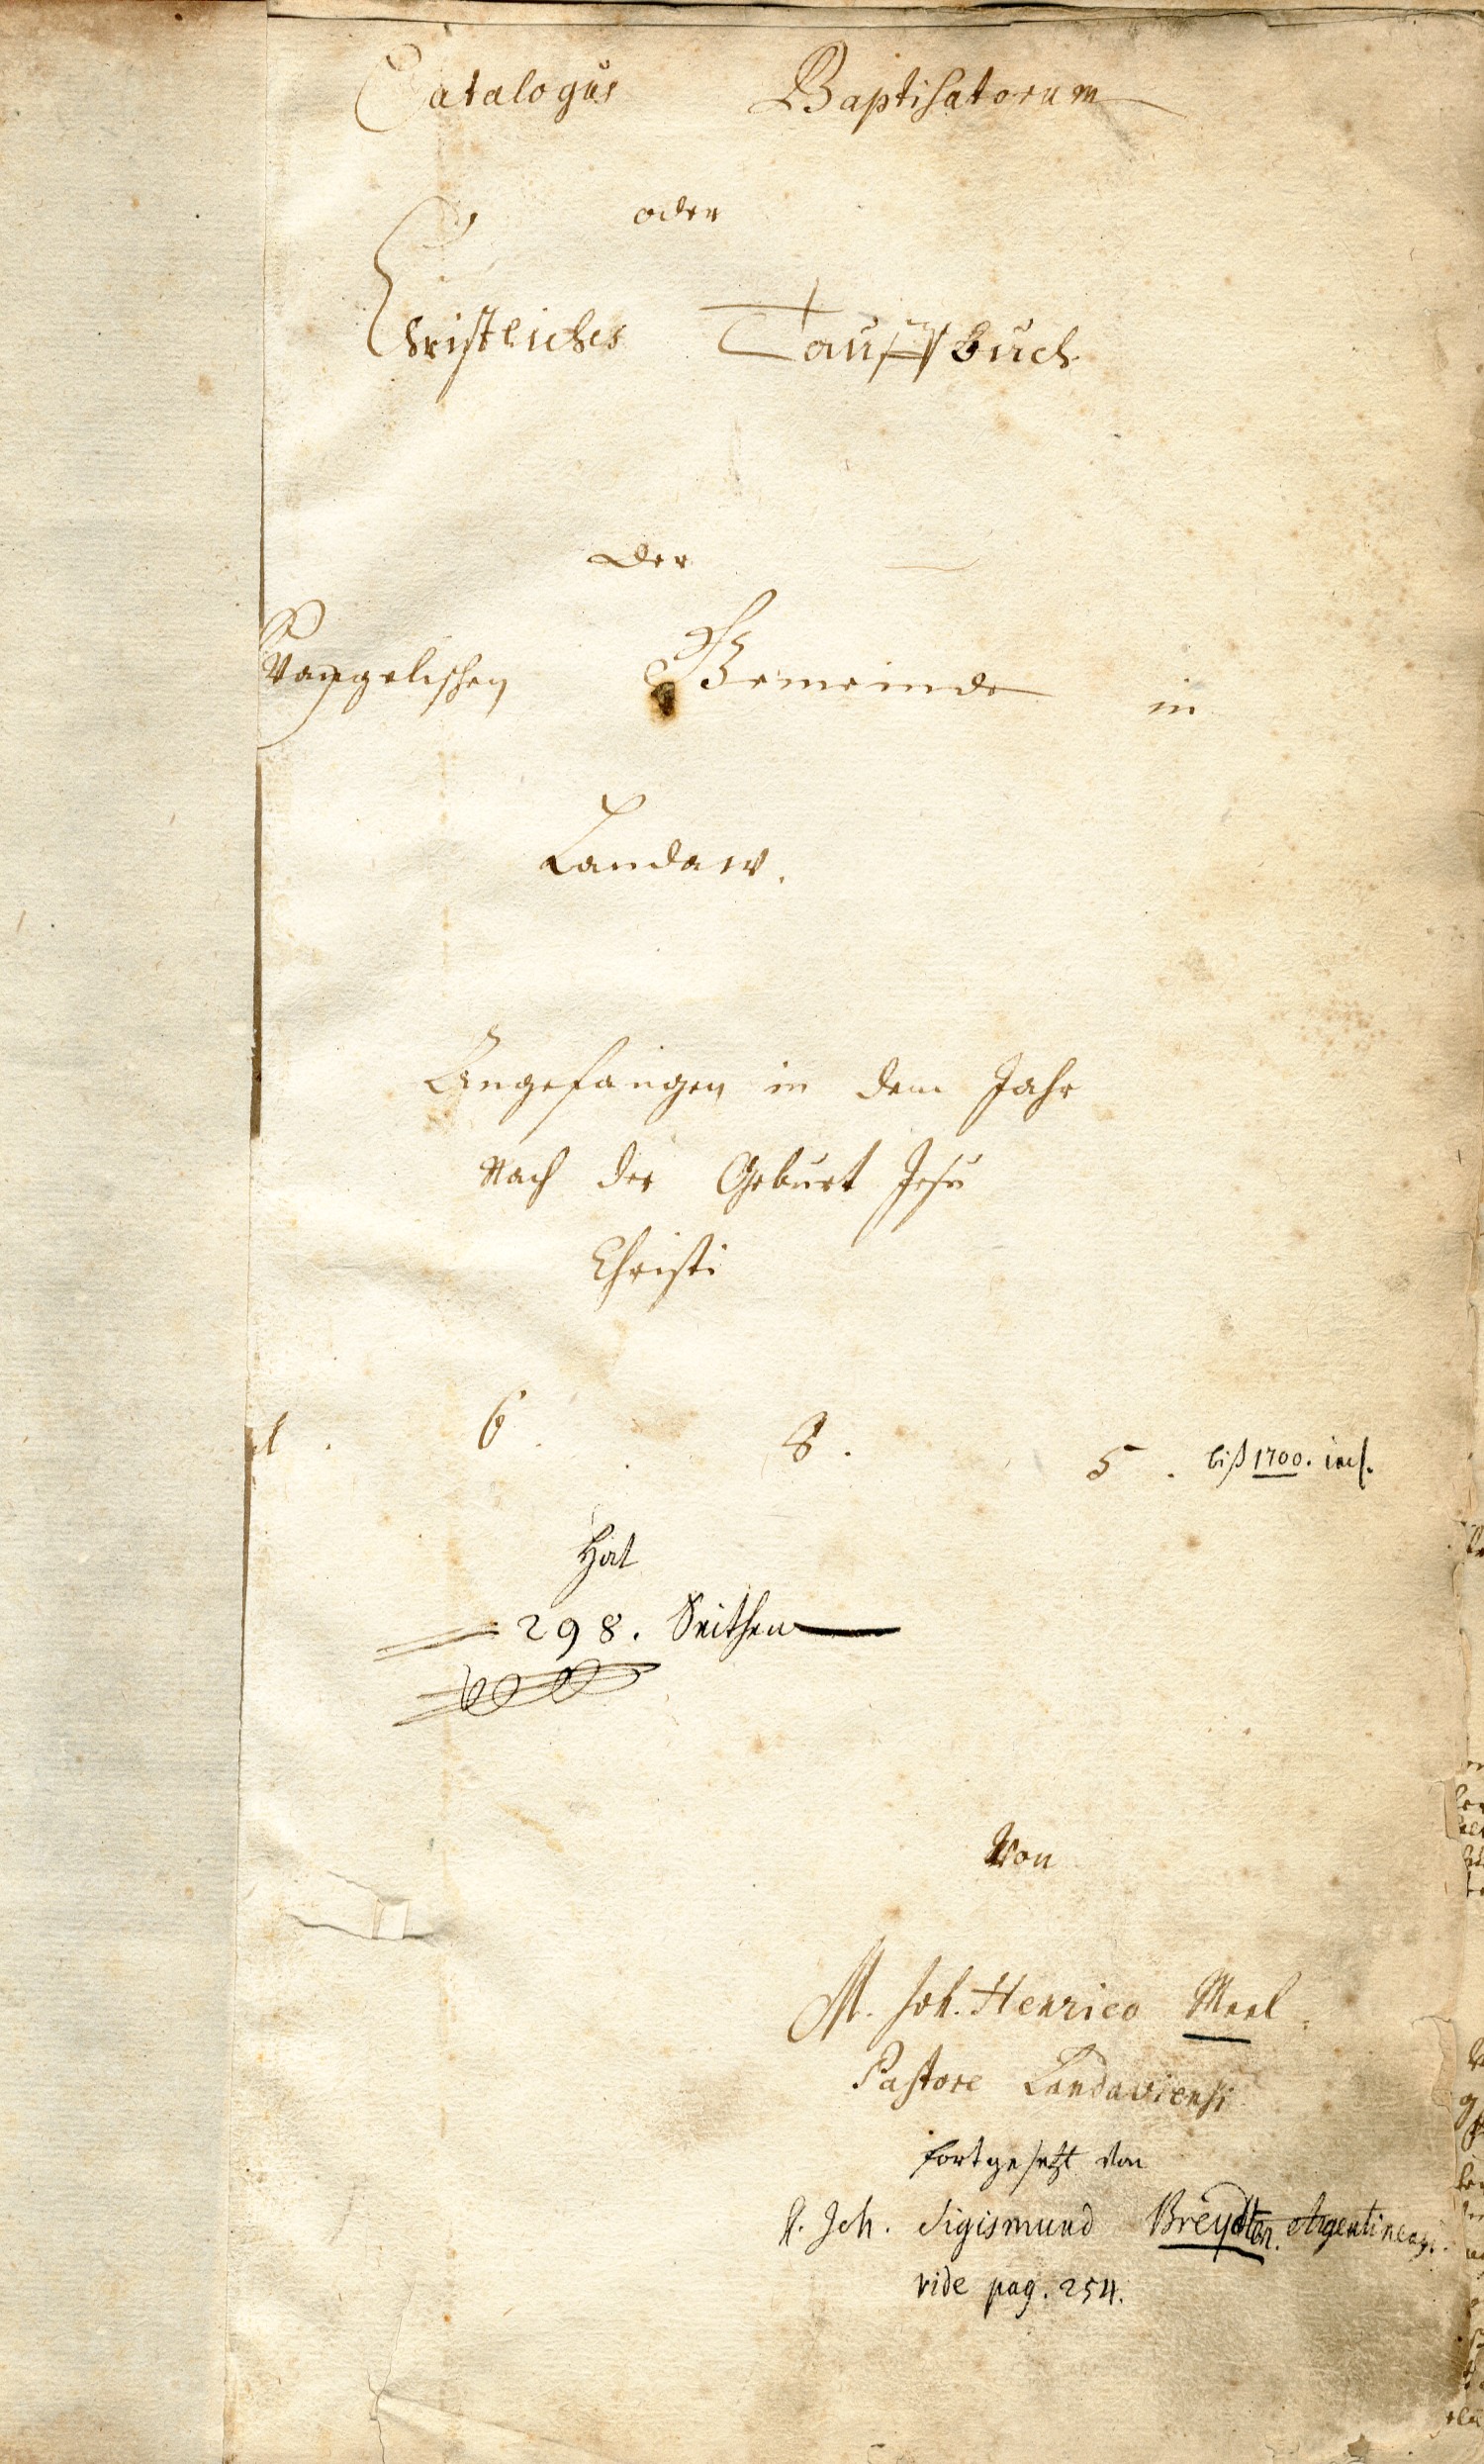 Catalogus Baptisatorum
oder
Christliches Tauffbuch
der
Evangelischen Gemeinde in
Landaw.
Angefangen in dem Jahr
Nach der Geburt Jesu
Christi
1. 6. 8. 5. biß 1700. incl.
Hat
298. Seithen
Von
M. Joh. Henrico Meel.
Pastore Landaviensi
fortgesetzt von
H. Joh. Sigismund Breydten.
vide pag. 254.